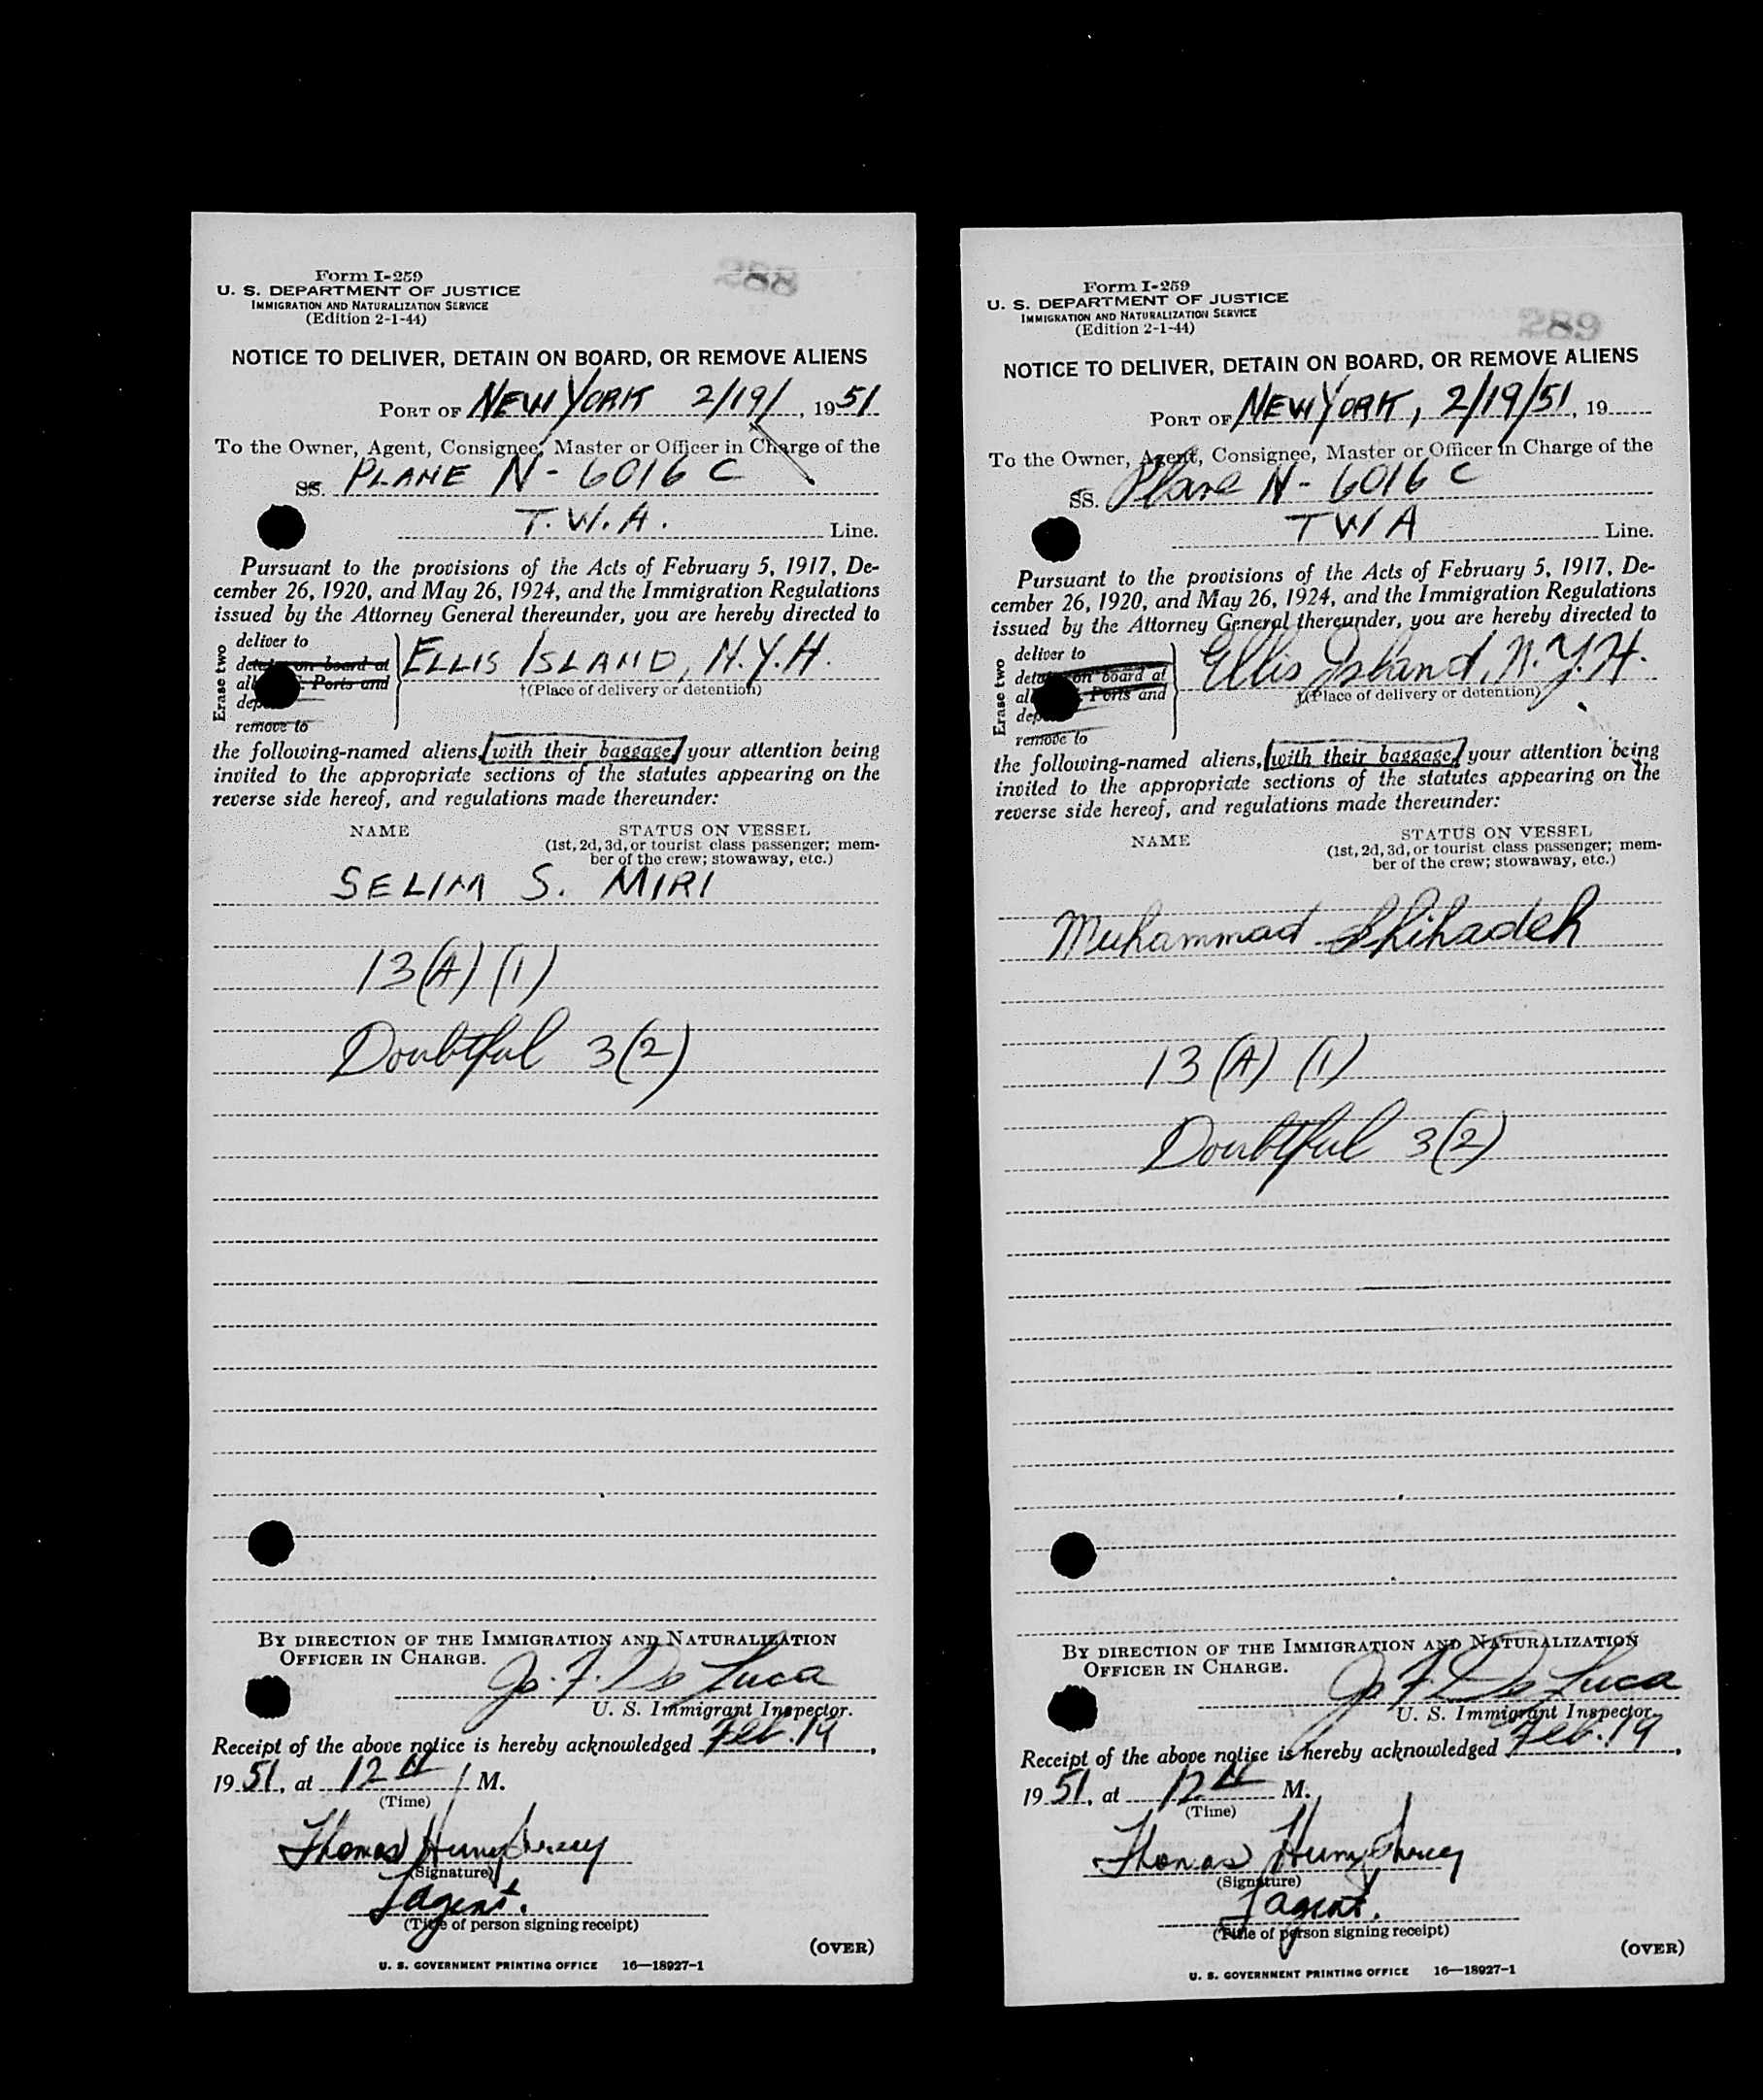 288
Form I-259
U. S. DEPARTMENT OF JUSTICE
IMMIGRATION AND NATURALIZATION SERVICE
(Edition 2-1-44)
NOTICE TO DELIVER, DETAIN ON BOARD, OR REMOVE ALIENS
PORT OF NEW YORK 2/19/, 1951
To the Owner, Agent, Consignee, Master or Officer in Charge of the
SS. PLANE N-6016 C
T.W.A. Line.
Pursuant to the provisions of the Acts of February 5, 1917, De-
cember 26, 1920, and May 26, 1924, and the Immigration Regulations
issued by the Attorney General thereunder, you are hereby directed to
Erase two
deliver to
on board at
Ports and
remove to
ELLIS ISLAND, N.Y.H.
†(Place of delivery or detention)
the following-named aliens, with their baggage, your attention being
invited to the appropriate sections of the statutes appearing on the
reverse side hereof, and regulations made thereunder:
NAME STATUS ON VESSEL
(1st, 2d, 3d, or tourist class passenger; mem-
ber of the crew; stowaway, etc.)
SELIM S. MIRI
13(A) (1)
Doubtful 3(2)
BY DIRECTION OF THE IMMIGRATION AND NATURALIZATION
OFFICER IN CHARGE.
Jo. F. De Luca
U. S. Immigrant Inspector.
Receipt of the above notice is hereby acknowledged Feb. 19,
1951, at 12 N M.
(Time)
Thomas Humphrey
(Signature)
agent.
(Title of person signing receipt)
(OVER)
U. S. GOVERNMENT PRINTING OFFICE 16—18927-1
289
Form I-259
U. S. DEPARTMENT OF JUSTICE
IMMIGRATION AND NATURALIZATION SERVICE
(Edition 2-1-44)
NOTICE TO DELIVER, DETAIN ON BOARD, OR REMOVE ALIENS
PORT OF NEW YORK, 2/19/51, 19
To the Owner, Agent, Consignee, Master or Officer in Charge of the
SS. Plane N-6016 C
TWA Line.
Pursuant to the provisions of the Acts of February 5, 1917, De-
cember 26, 1920, and May 26, 1924, and the Immigration Regulations
issued by the Attorney General thereunder, you are hereby directed to
Erase two
deliver to
on board at
Ports and
remove to
Ellis Island, N.Y.H.
†(Place of delivery or detention)
the following-named aliens, with their baggage, your attention being
invited to the appropriate sections of the statutes appearing on the
reverse side hereof, and regulations made thereunder:
NAME STATUS ON VESSEL
(1st, 2d, 3d, or tourist class passenger; mem-
ber of the crew; stowaway, etc.)
Muhammad Shihadeh
13 (A) (1)
Doubtful 3(2)
BY DIRECTION OF THE IMMIGRATION AND NATURALIZATION
OFFICER IN CHARGE.
Jo F. De Luca
U. S. Immigrant Inspector.
Receipt of the above notice is hereby acknowledged Feb. 19,
1951, at 12 N M.
(Time)
Thomas Humphrey
(Signature)
agent.
(Title of person signing receipt)
(OVER)
U. S. GOVERNMENT PRINTING OFFICE 16—18927-1